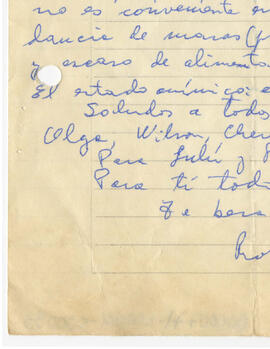 no es conveniente en
dancia de moras (p
y escaso de alimento
El estado anímico: e
Saludos a todos
Olga, Wilson, Cher
Para Lulú y P
Para tí tod
Te besa
Ro